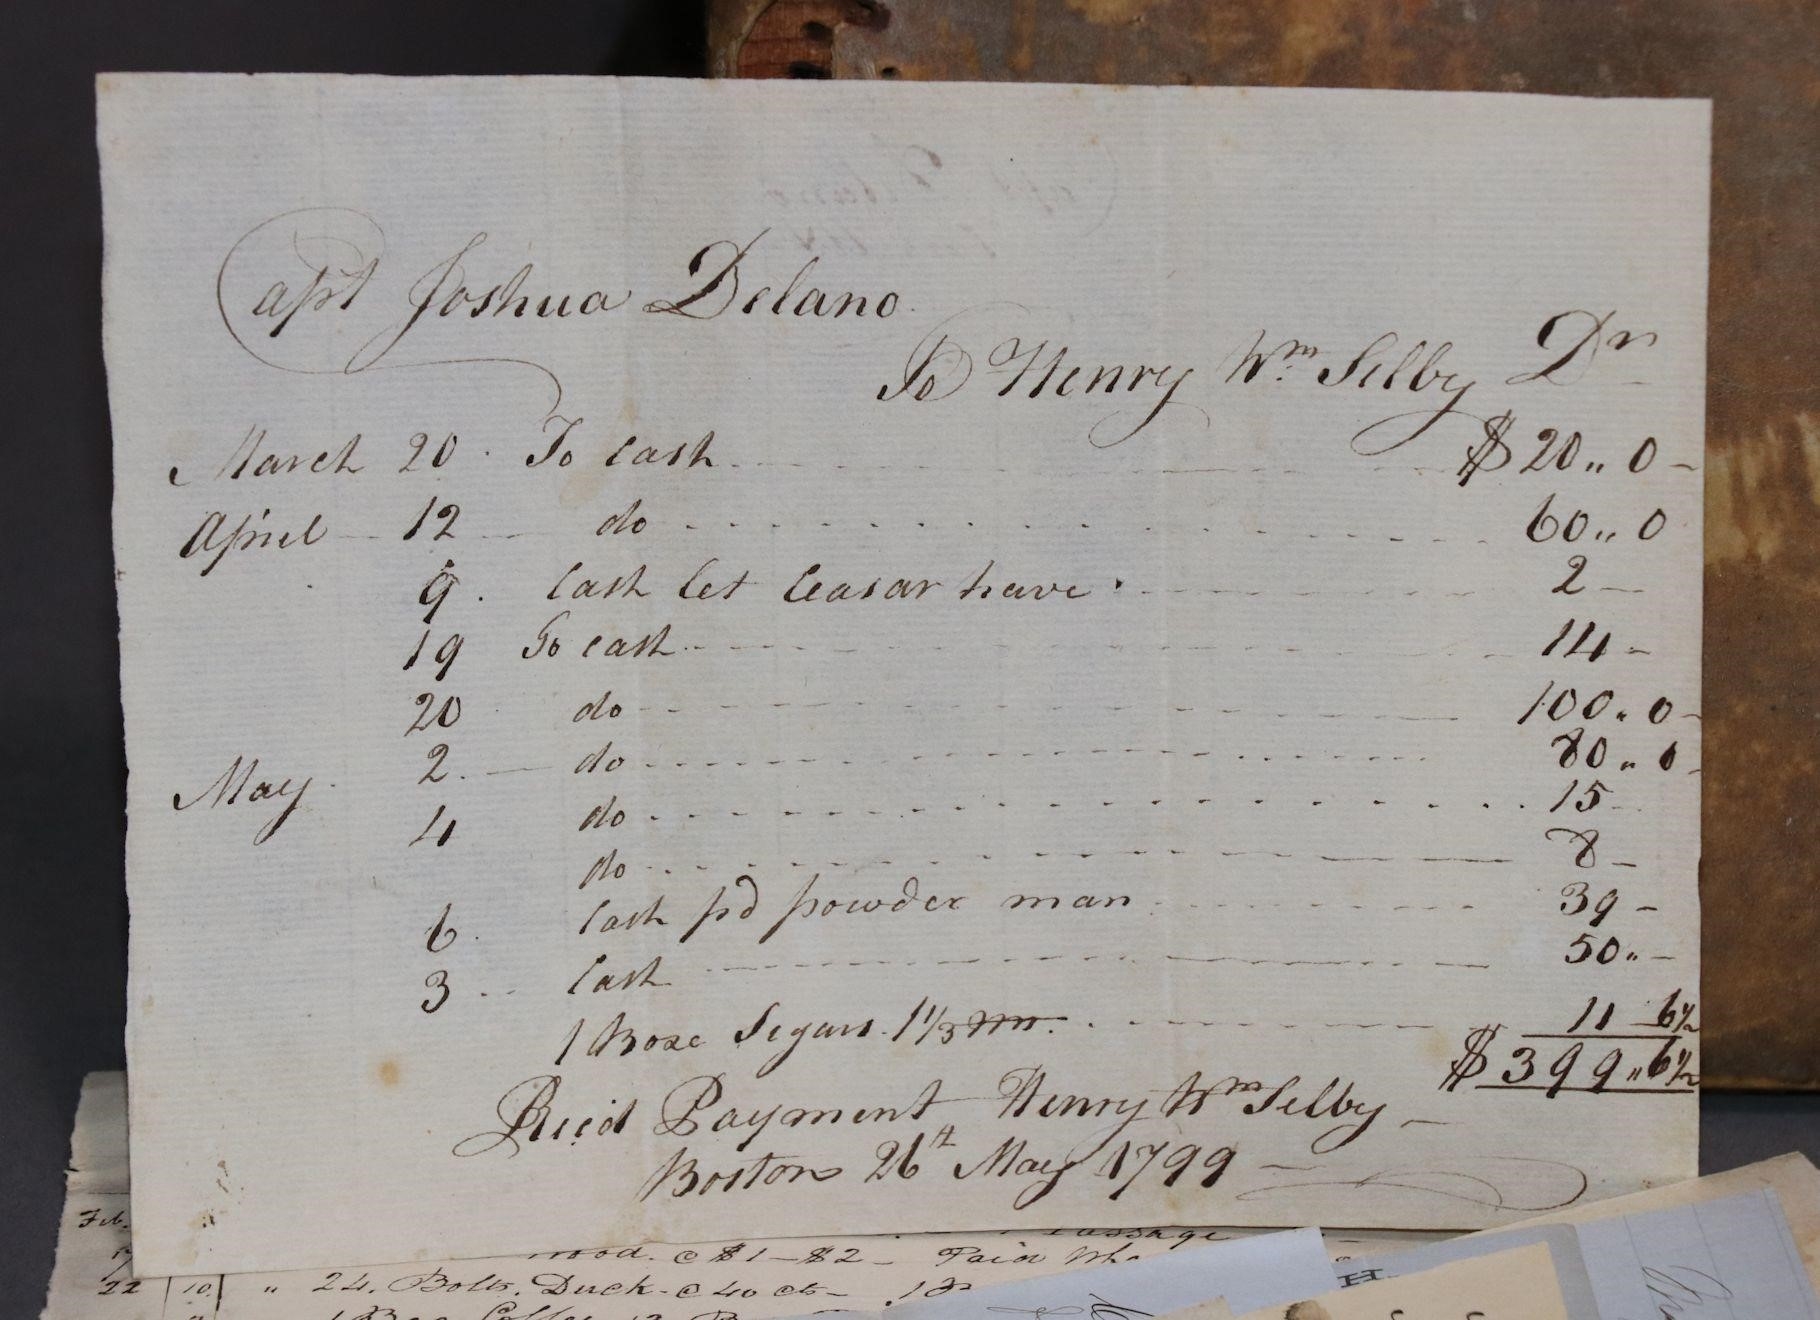 Capt Joshua Delano
To Henry Wm Selby Dr
March 20 . To Cash $20,, 0 -
April 12 do 60,, 0
9 . Cash let Ceasar have 2 -
19 To Cash 14 -
20 do 100,, 0 -
May 2. - do 80,, 0 -
4 do 15 -
do 8 -
6 Cash pd powder man 39 -
3 Cash 50,, -
1 Boxe Segars 1 1/3 11 6 1/2
$ 399,, 6 1/2
Recd Payment Henry Wm Selby -
Boston 26th May 1799 -
Feb.
passage
wood. @ $1 - $2 - Paid
22 10 " 24. Bolts. Duck - @ 40 cts -